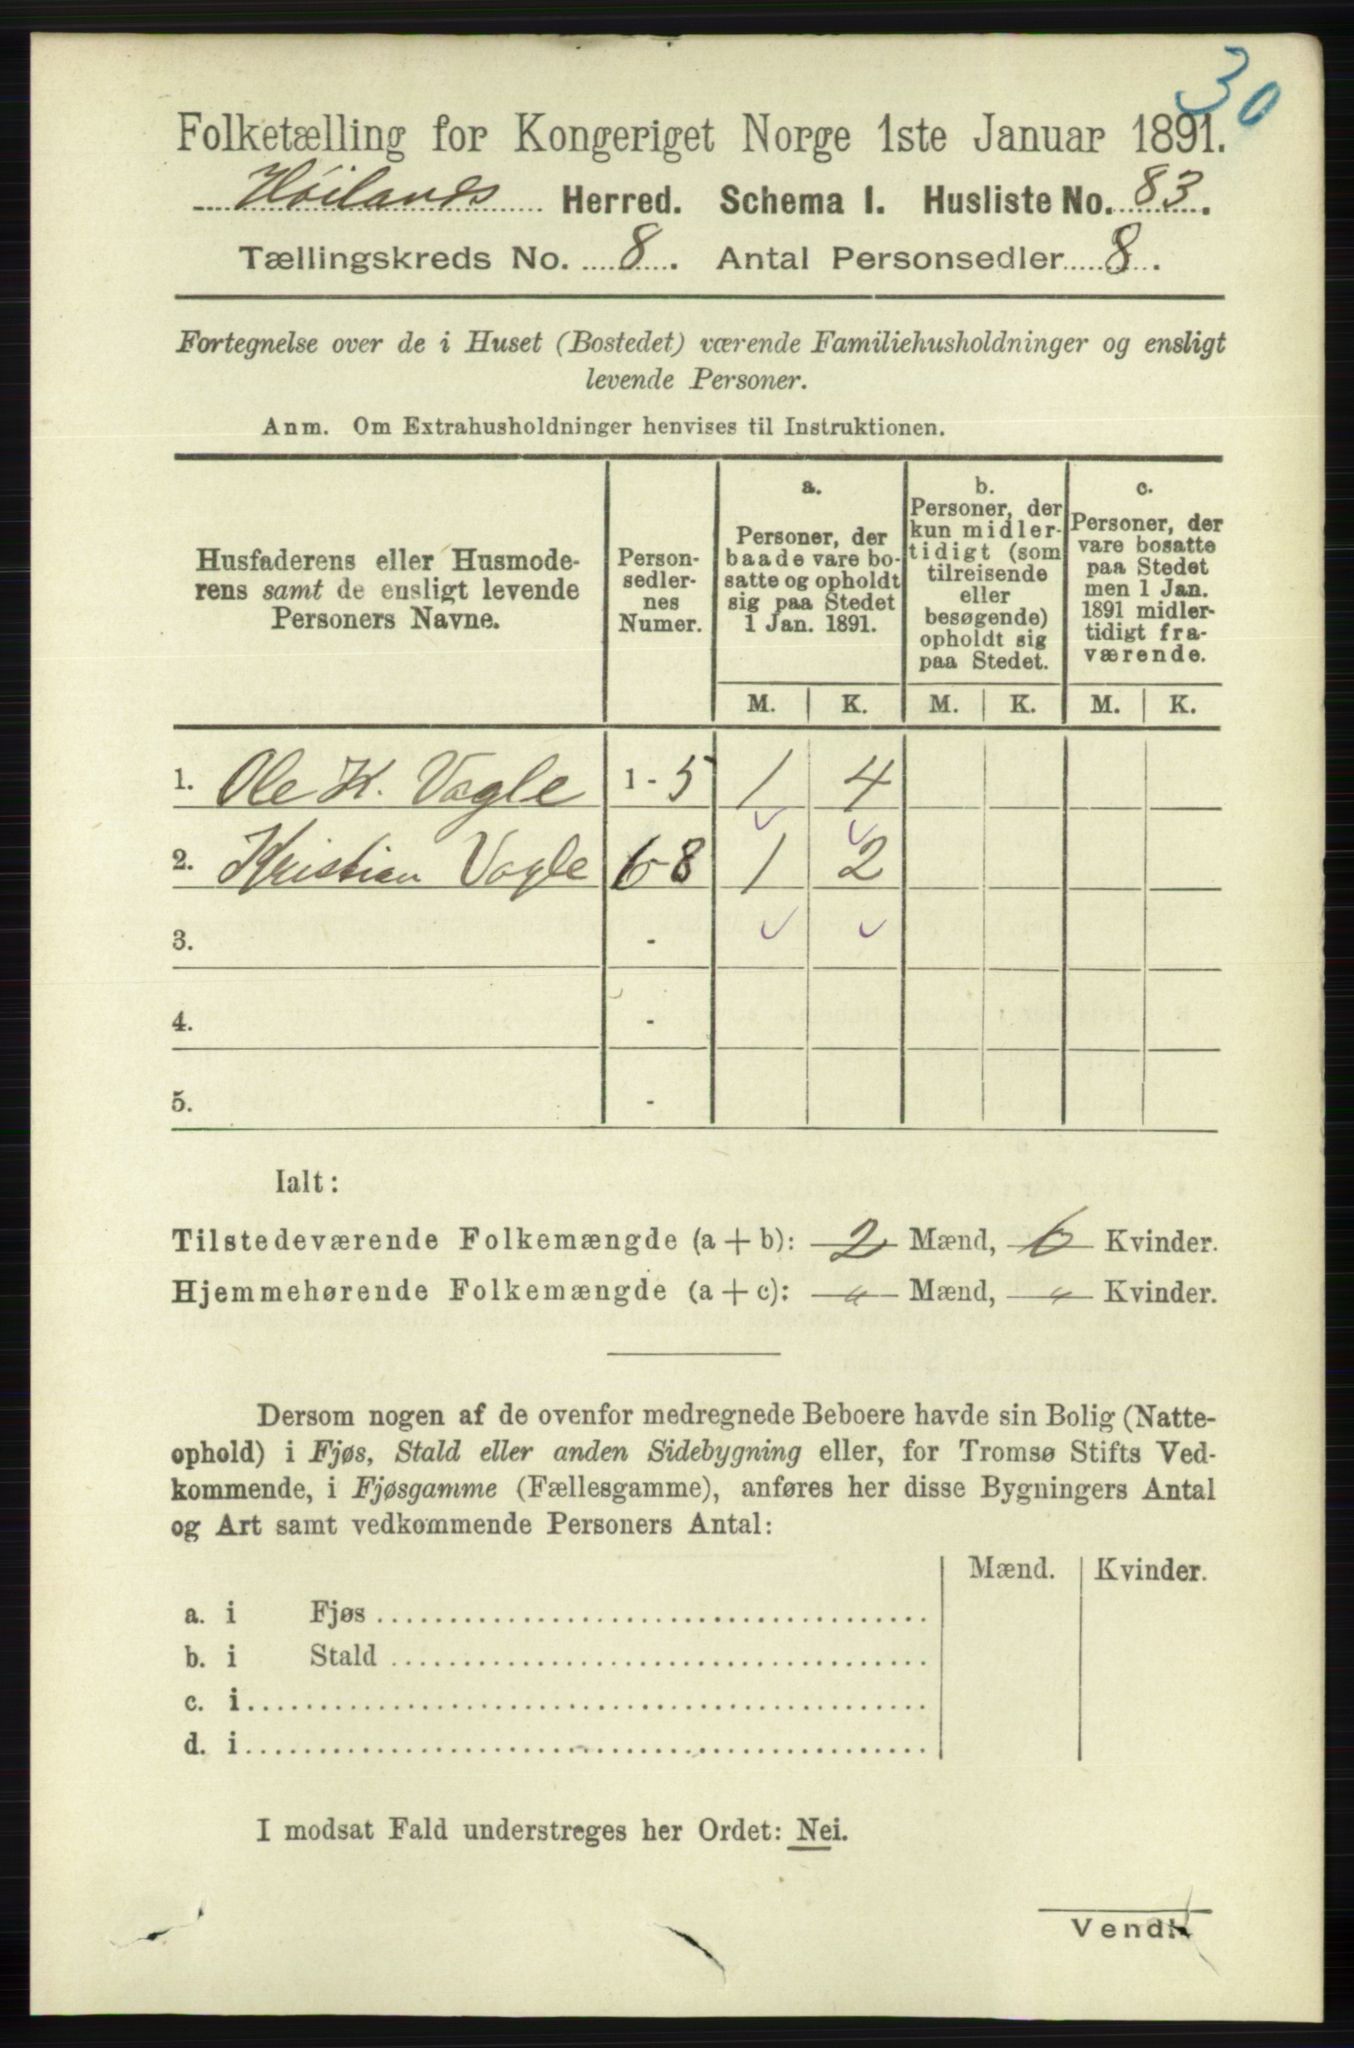 30
Folketælling for Kongeriget Norge 1ste Januar 1891.
Høilands Herred. Schema I. Husliste No. 83.
Tællingskreds No. 8. Antal Personsedler 8.
Fortegnelse over de i Huset (Bostedet) værende Familiehusholdninger og ensligt
levende Personer.
Anm. Om Extrahusholdninger henvises til Instruktionen.
Husfaderens eller Husmode-
rens samt de ensligt levende
Personers Navne.
Person-
sedler-
nes
Numer.
a.
Personer, der
baade vare bo-
satte og opholdt
sig paa Stedet
1 Jan. 1891.
b.
Personer, der
kun midler-
tidigt (som
tilreisende
eller
besøgende)
opholdt sig
paa Stedet.
c.
Personer, der
vare bosatte
paa Stedet
men 1 Jan.
1891 midler-
tidigt fra-
værende.
M. K. M. K. M. K.
1. Ole K. Vagle 1 - 5 1 4
2. Kristian Vagle 6-8 1 2
3. -
4. -
5. -
Ialt:
Tilstedeværende Folkemængde (a + b): 2 Mænd, 6 Kvinder.
Hjemmehørende Folkemængde (a + c): " Mænd, " Kvinder.
Dersom nogen af de ovenfor medregnede Beboere havde sin Bolig (Natte-
ophold) i Fjøs, Stald eller anden Sidebygning eller, for Tromsø Stifts Ved-
kommende, i Fjøsgamme (Fællesgamme), anføres her disse Bygningers Antal
og Art samt vedkommende Personers Antal:
Mænd. Kvinder.
a. i Fjøs
b. i Stald
c. i
d. i
I modsat Fald understreges her Ordet: Nei.
Vend!